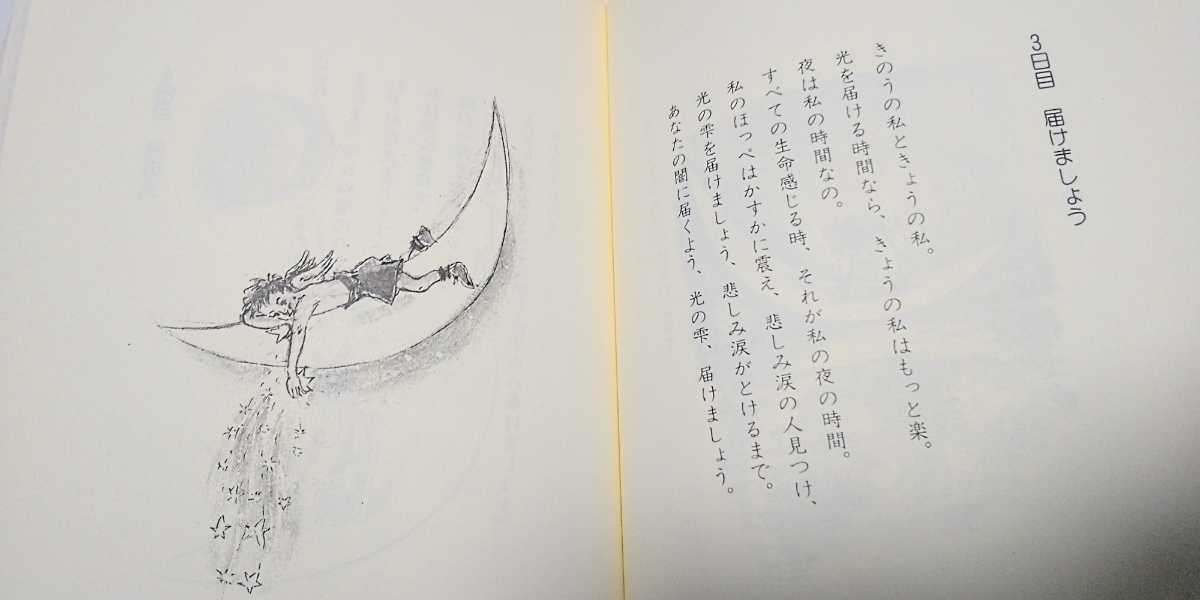 3日目　届けましょう
きのうの私ときょうの私。
光を届ける時間なら、きょうの私はもっと楽。
夜は私の時間なの。
すべての生命感じる時、それが私の夜の時間。
私のほっぺはかすかに震え、悲しみ涙の人見つけ、
光の雫を届けましょう、悲しみ涙がとけるまで。
あなたの闇に届くよう、光の雫、届けましょう。